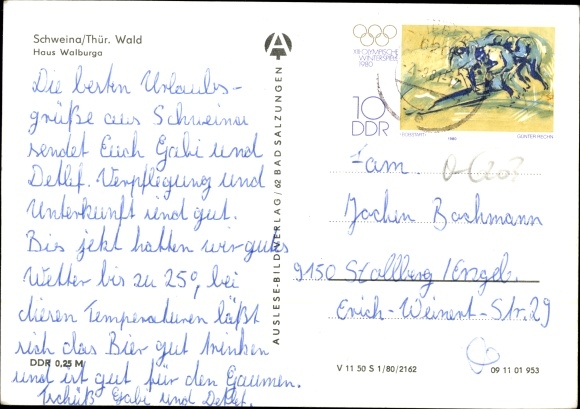 Schweina/Thür. Wald
Haus Walburga
Die besten Urlaubs-
grüße aus Schweina
sendet Euch Gabi und
Detlef. Verpflegung und
Unterkunft sind gut.
Bis jetzt hatten wir gutes
Wetter bis zu 25°, bei
diesen Temperaturen läßt
sich das Bier gut trinken
und ist gut für den Gaumen.
Tschüß Gabi und Detlef.
DDR 0,25 M
AUSLESE-BILD-VERLAG/62 BAD SALZUNGEN
XIII. OLYMPISCHE
WINTERSPIELE
1980
10
DDR
1980
GÜNTER RECHN
Fam.
Jochen Bachmann
9150 Stollberg/Erzgeb.
Erich-Weinert-Str. 29
V 11 50 S 1/80/2162
09 11 01 953